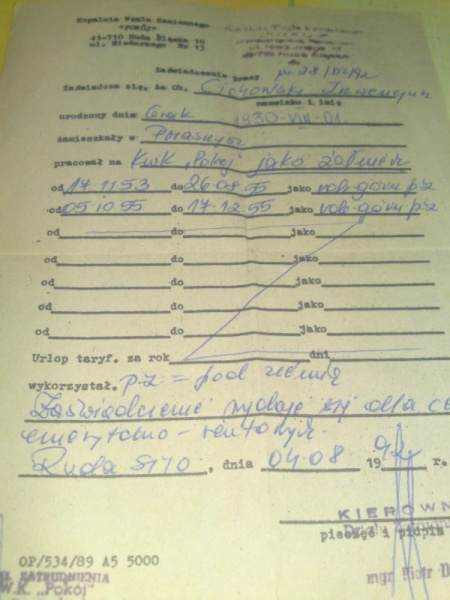 Kopalnia Węgla Kamiennego
"POKÓJ"
41-710 Ruda Śląska 10
ul. Niedurnego Nr 13
Zaświadczenie pracy pr 28/
Zaświadcza się, że Ob.
nazwisko i imię
urodzony dnia 1930-VIII-01.
zamieszkały w
pracował na KWK „Pokój" jako żołnierz
od 17.11.53 do 26.08.55 jako rob. górn pz
od 05.10.55 do 17.12.55 jako rob. górn pz
od do jako
od do jako
od do jako
od do jako
od do jako
Urlop taryf. za rok dni
wykorzystał. p.z. = pod ziemią
Zaświadczenie wydaje się dla
emerytalno-rentowych
Ruda Śl 10, dnia 04.08 1992 r.
KIEROWN
pieczęć i podpis
mgr Piotr D
OP/534/89 A5 5000
ZATRUDNIENIA
W.K. „Pokój"